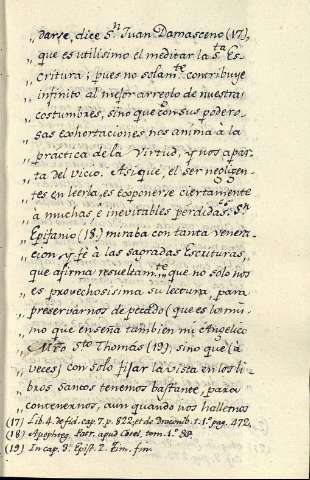 darse, dice Sⁿ. Juan Damasceno (17),
„ que es utilisimo el meditar la Sᵗᵃ. Es-
„ critura; pues no solamᵗᵉ. contribuye
„ infinito al mejor arreglo de nuestras
„ costumbres, sino que con sus podero-
„ sas exhortaciones nos anima à la
„ practica de la Virtud, y nos apar-
„ ta del vicio. Asi que, el ser negligen-
„ tes en leerla, es exponerse ciertamente
„ à muchas, è inevitables perdidas. Sⁿ.
„ Epifanio (18) miraba con tanta venera-
„ cion y fè à las sagradas Escrituras,
„ que afirma resueltamᵗᵉ. que no solo nos
„ es provechosisima su lectura, para
„ preservarnos de pecado (que es lo mis-
„ mo que enseña tambien mi Angelico
„ Mrõ Stõ Thomàs (19), sino que (à
„ veces) con solo fijar la vista en los li-
„ bros Santos tenemos bastante, para
„ contenernos, aun quando nos hallemos
(17) Lib. 4. de fid. cap. 7. p. 822. et de Draconib. t. 1.º pag. 472.
(18) Apophteg. Patr. apud Cotel. tom. 1.º
(19) In cap. 3. Epist. 2. Tim. fin.